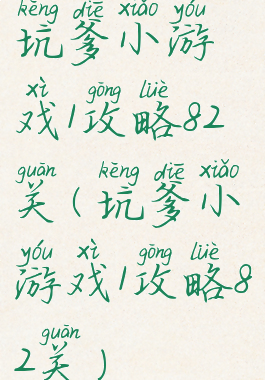 kēng diē xiǎo yóu
坑爹小游
xì gōng lüè
戏1攻略82
guān kēng diē xiǎo
关(坑爹小
yóu xì gōng lüè
游戏1攻略8
guān
2关)